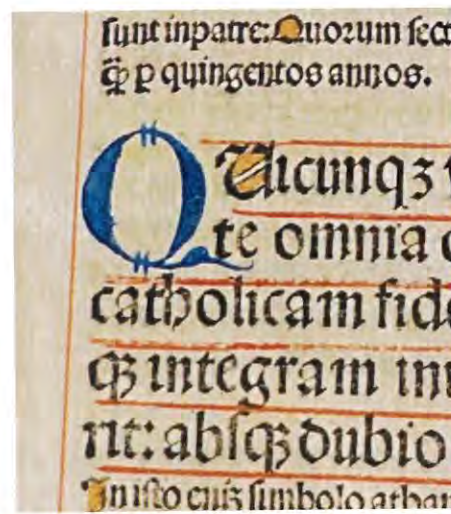 sunt inpatre: Quorum sect
q̃ ꝑ quingentos annos.
QUicunqꝫ v
te omnia o
catholicam fide
qꝫ integram inu
rit: absqꝫ dubio
In isto eniꝫ simbolo athan